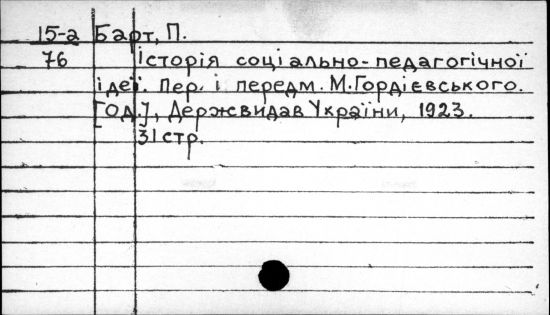 15-а Барт, П.
76 Історія соціально-педагогічної
ідеї. Пер. і передм. М.Гордієвського.
[Од.], Держвидав України, 1923.
31 стр.